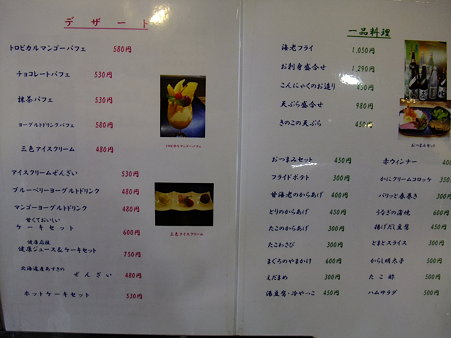 デザート
トロピカルマンゴーパフェ 580円
チョコレートパフェ 530円
抹茶パフェ 530円
ヨーグルトドリンクパフェ 580円
三色アイスクリーム 480円
トロピカルマンゴーパフェ
アイスクリームぜんざい 530円
ブルーベリーヨーグルトドリンク 480円
マンゴーヨーグルトドリンク 480円
甘くておいしい
ケーキセット 600円
健康応援
健康ジュース&ケーキセット 750円
北海道産あずきの
ぜんざい 480円
ホットケーキセット 530円
三色アイスクリーム
一品料理
海老フライ 1,050円
お刺身盛合せ 1,290円
こんにゃくのお造り 450円
天ぷら盛合せ 980円
きのこの天ぷら 450円
おつまみセット
おつまみセット 450円
フライドポテト 300円
甘海老のからあげ 400円
とりのからあげ 450円
たこのからあげ 300円
たこわさび 300円
まぐろのやまかけ 600円
えだまめ 300円
湯豆腐・冷やっこ 450円
赤ウィンナー 400円
かにクリームコロッケ 350円
パリッと春巻き 300円
うなぎの蒲焼 600円
揚げだし豆腐 450円
とまとスライス 300円
からし明太子 500円
たこ酢 500円
ハムサラダ 500円